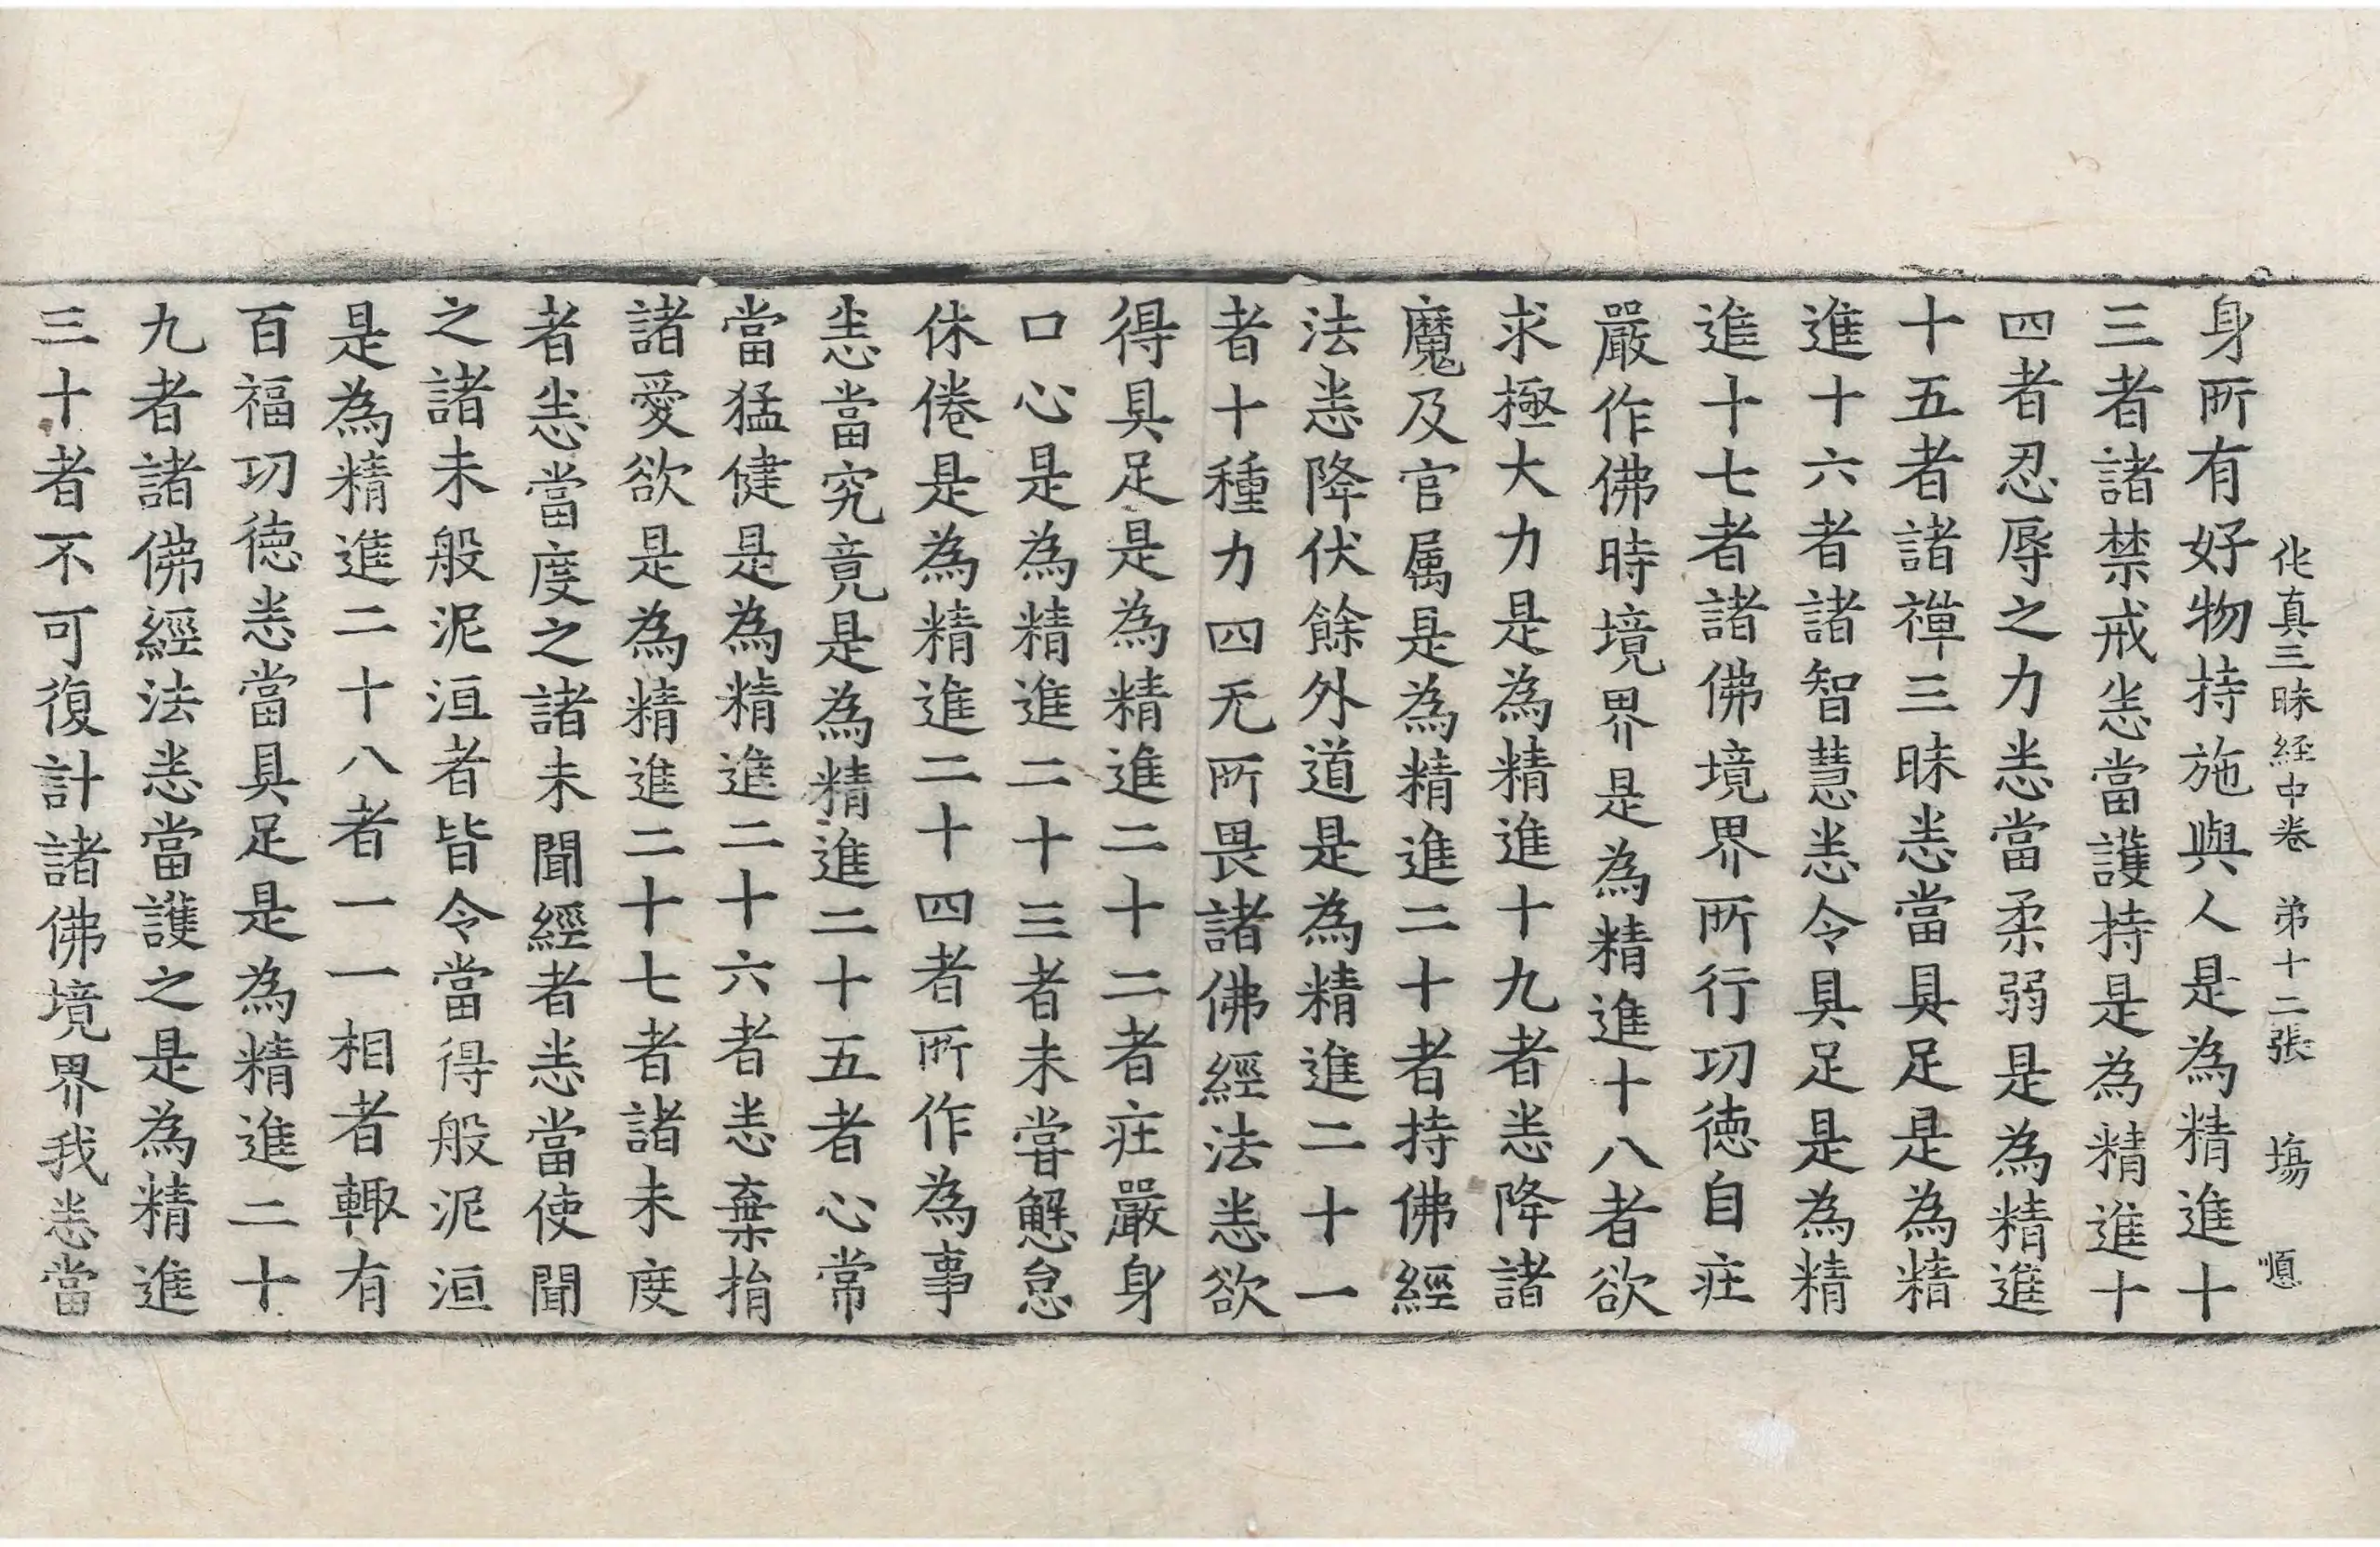 佗真三昧経中卷　弟十二張　塲　順
身所有好物持施與人是為精進十
三者諸禁戒恙當護持是為精進十
四者忍辱之力恙當柔弱是為精進
十五者諸禪三昧恙當具足是為精
進十六者諸智慧恙令具足是為精
進十七者諸佛境界所行㓛德自疘
嚴作佛時境界是為精進十八者欲
求極大力是為精進十九者恙降諸
魔及官属是為精進二十者持佛經
法恙降伏餘外道是為精進二十一
者十種力四无所畏諸佛經法恙欲
得具足是為精進二十二者疘嚴身
口心是為精進二十三者未甞懈怠
休倦是為精進二十四者所作為事
恙當究竟是為精進二十五者心常
當猛健是為精進二十六者恙棄捐
諸愛欲是為精進二十七者諸未度
者恙當度之諸未聞經者恙當使聞
之諸未般泥洹者皆令當得般泥洹
是為精進二十八者一一相者輙有
百福㓛德恙當具足是為精進二十
九者諸佛經法恙當護之是為精進
三十者不可復計諸佛境界我恙當